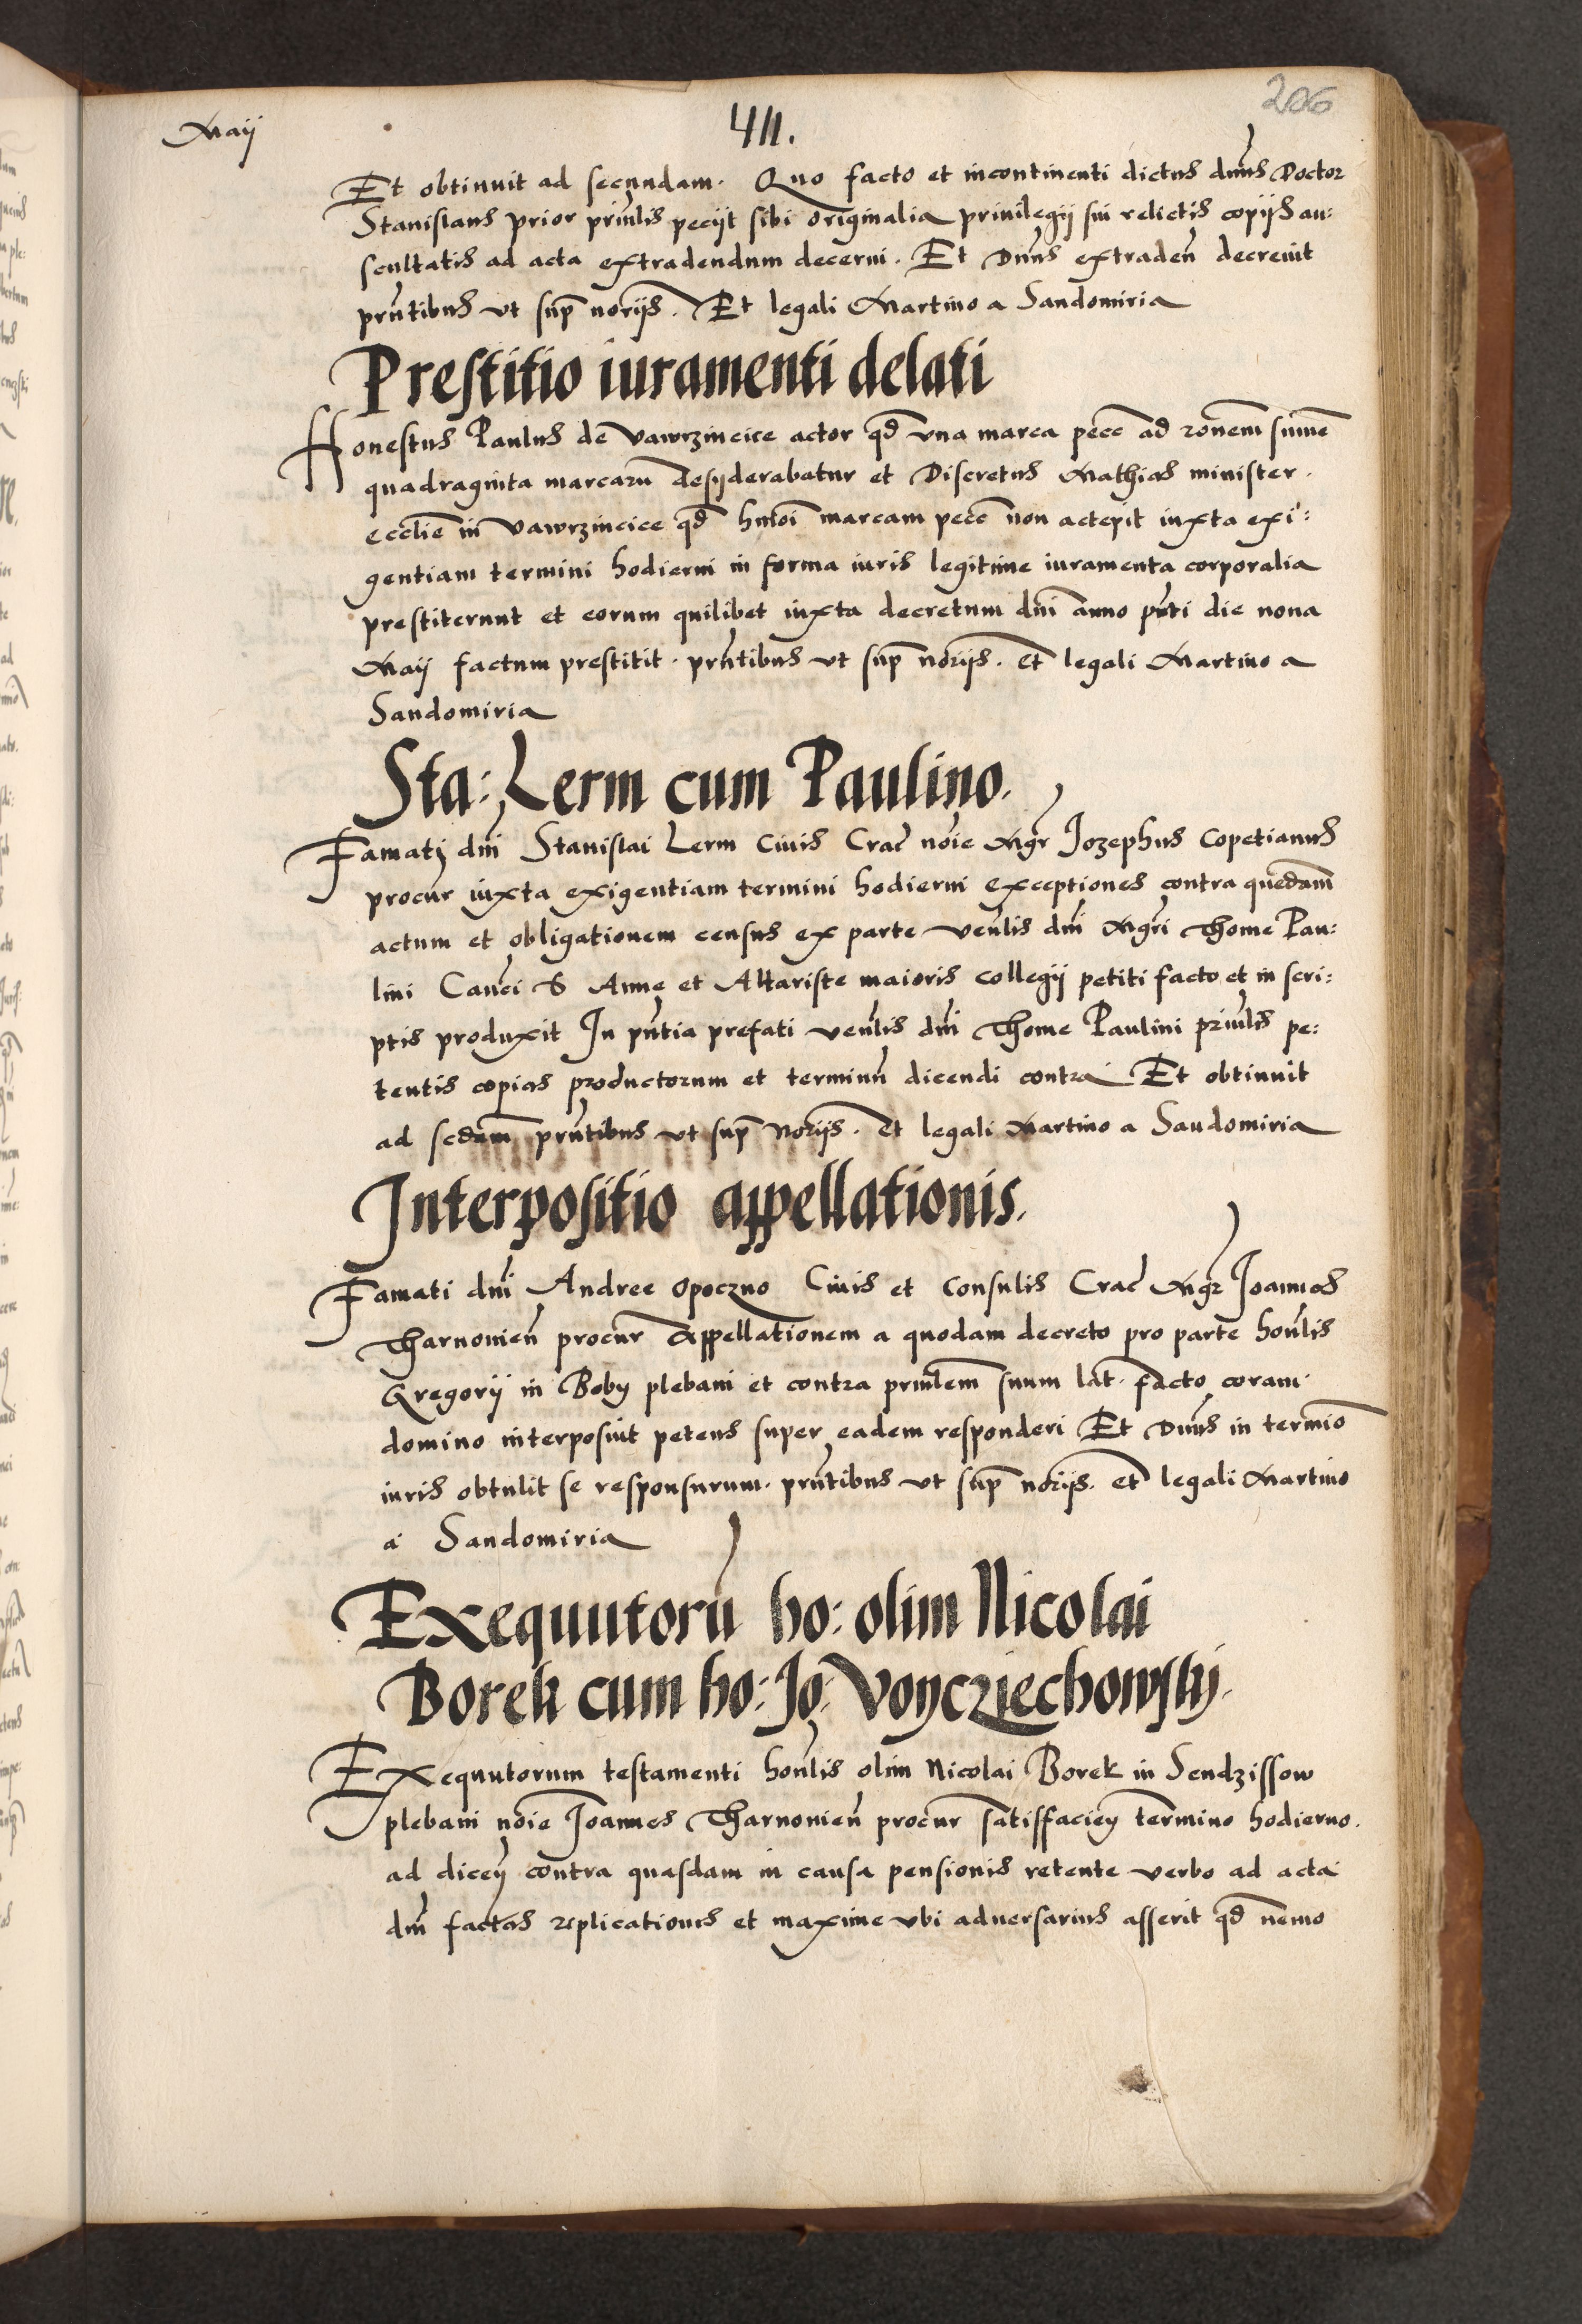 206
Maij
411.
Et obtinuit ad secundam. Quo facto et incontinenti dictus dnus Doctor
Stanislaus prior prinlis peciit sibi originalia priuilegij sui relictis copijs au:
scultatis ad acta extradendum decerni. Et Dnus extraden decreuit
prntibus vt sup norijs. Et legali Martino a Sandomiria
Prestitio iuramenti delati
Honestus Paulus de Vawrzincice actor qd vna marca pecc ad ronem summe
quadraginta marcaru desyderabatur et Discretus Mathias minister.
ecclie in Vawrzincice qd hmoi marcam pecc non accepit iuxta exi:
gentiam termini hodierni in forma iuris legitime iuramenta corporalia
prestiterunt et eorum quilibet iuxta decretum dni anno pnti die nona
Maij factum prestitit. prntibus vt sup norijs. Et legali Martino a
Sandomiria
Sta: Lerm cum Paulino.
Famati dni Stanislai Lerm Ciuis Crac noie Mgr Jozephus Copetianus
procur iuxta exigentiam termini hodierni exceptiones contra quedam
actum et obligationem census ex parte venlis dni Mgri Thome Pau:
lini Canci S Anne et Altariste maioris collegij petiti facto et in scri:
ptis produxit In pntia prefati venlis dni Thome Paulini prinlis pe:
tentis copias productorum et terminu dicendi contra Et obtinuit
ad scdam prntibus vt sup Norijs. Et legali Martino a Sandomiria
Interpositio appellationis.
Famati dni Andree Opoczno Ciuis et Consulis Crac Mgr Joannes
Tharnonien procur Appellationem a quodam decreto pro parte honlis
Gregorij in Boby plebani et contra prinlem suum lat. facto coram
domino interposuit petens super eadem responderi Et Dnus in termio
iuris obtulit se responsurum. prntibus vt sup norijs. et legali Martino
a Sandomiria
Exequutoru ho: olim Nicolai
Borek cum ho: Jo: Voycziechowsky.
Exequutorum testamenti honlis olim Nicolai Borek in Sendzissow
plebani noie Joannes Tharnonien procur satisfaciey termino hodierno.
ad dicey contra quasdam in causa pensionis retente verbo ad acta
dni factas replicationes et maxime vbi aduersarius asserit qd nemo